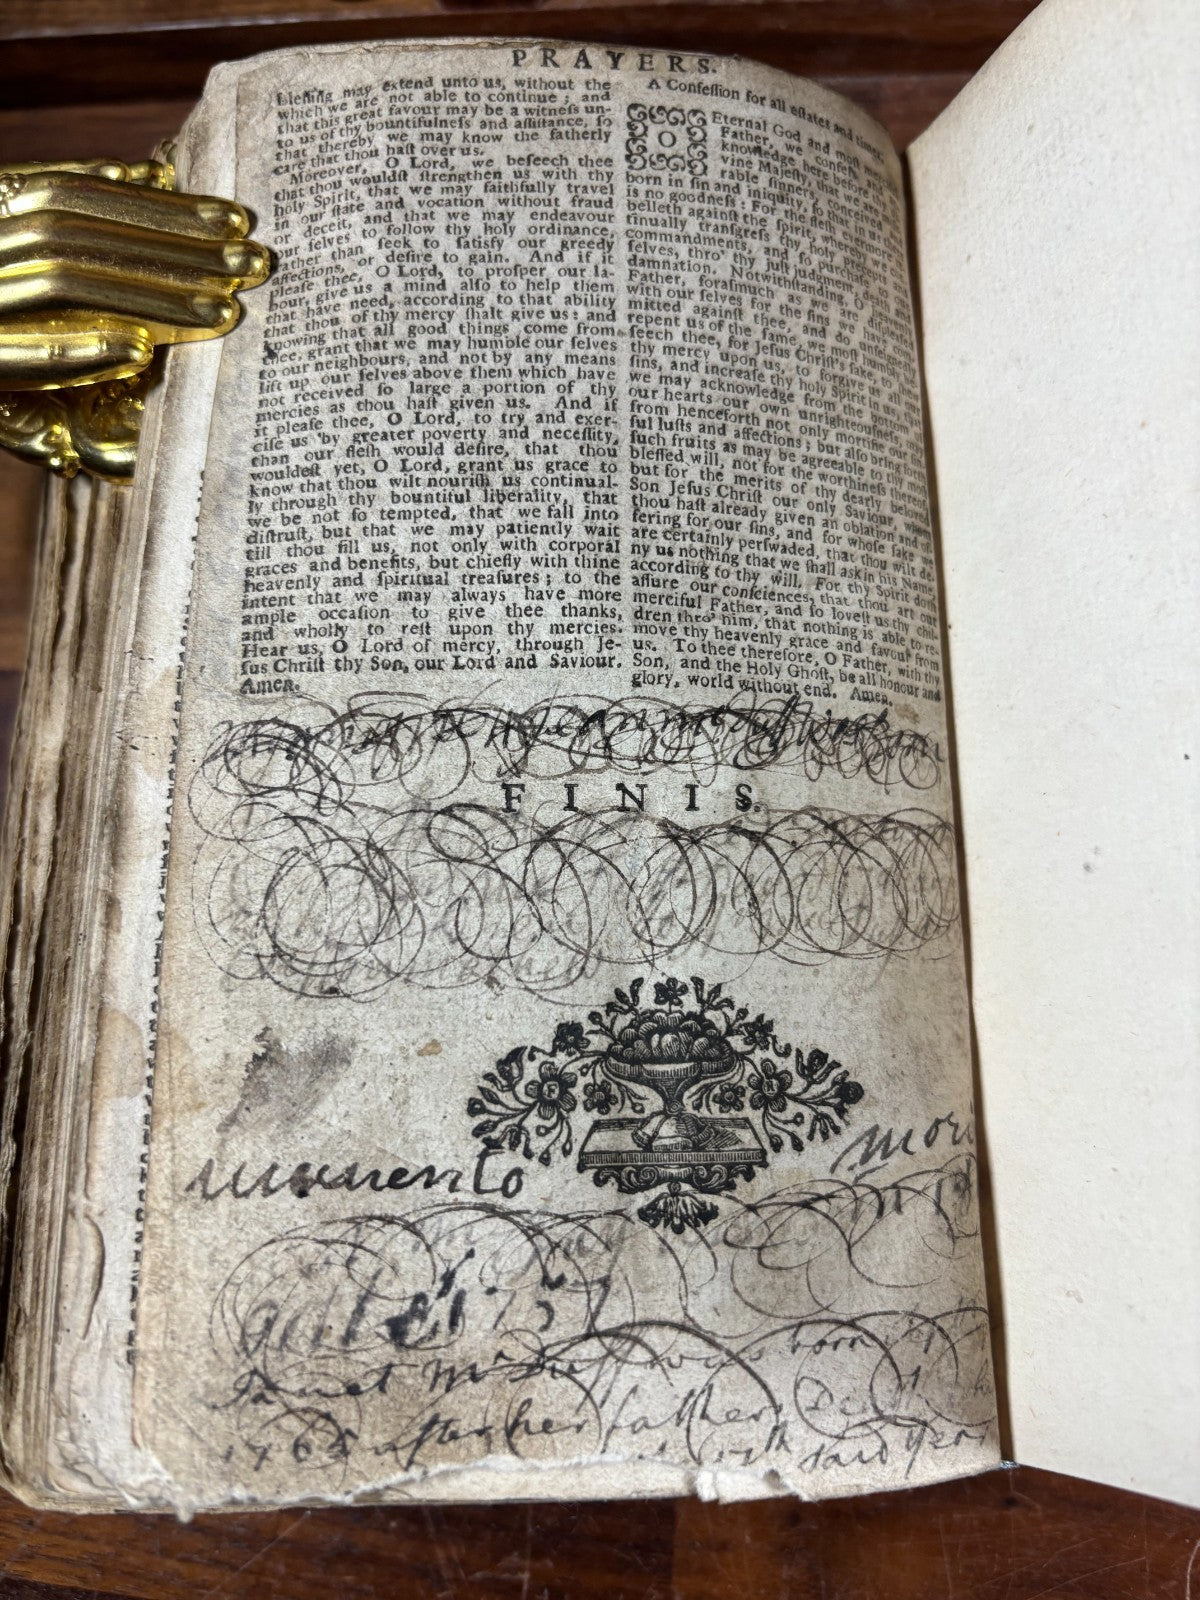 PRAYERS.
bleſſing may extend unto us, without the
which we are not able to continue ; and
that this great favour may be a witneſs un-
to us of thy bountifulneſs and aſſiſtance, ſo
that thereby we may know the fatherly
care that thou haſt over us.
Moreover, O Lord, we beſeech thee
that thou wouldſt ſtrengthen us with thy
holy Spirit, that we may faithfully travel
in our ſtate and vocation without fraud
or deceit, and that we may endeavour
our ſelves to follow thy holy ordinance,
rather than ſeek to ſatisfy our greedy
affections, or deſire to gain. And if it
pleaſe thee, O Lord, to proſper our la-
bour, give us a mind alſo to help them
that have need, according to that ability
that thou of thy mercy ſhalt give us: and
knowing that all good things come from
thee, grant that we may humble our ſelves
to our neighbours, and not by any means
lift up our ſelves above them which have
not received ſo large a portion of thy
mercies as thou haſt given us. And if
it pleaſe thee, O Lord, to try and exer-
ciſe us by greater poverty and neceſſity,
than our fleſh would deſire, that thou
wouldeſt yet, O Lord, grant us grace to
know that thou wilt nouriſh us continual-
ly through thy bountiful liberality, that
we be not ſo tempted, that we fall into
diſtruſt, but that we may patiently wait
till thou fill us, not only with corporal
graces and benefits, but chiefly with thine
heavenly and ſpiritual treaſures ; to the
intent that we may always have more
ample occaſion to give thee thanks,
and wholly to reſt upon thy mercies.
Hear us, O Lord of mercy, through Je-
ſus Chriſt thy Son, our Lord and Saviour.
Amen.
A Confeſſion for all eſtates and times.
O Eternal God and moſt merciful
Father, we confeſs, and
knowledge here before thy
vine Majeſty, that we are
rable ſinners, conceived and
born in ſin and iniquity, ſo that in us there
is no goodneſs : For the fleſh evermore re-
belleth againſt the ſpirit, whereby we con-
tinually tranſgreſs thy holy precepts and
commandments, and ſo purchaſe to our
ſelves, thro' thy juſt judgment, death and
damnation. Notwithſtanding, O heavenly
Father, foraſmuch as we are diſpleaſed
with our ſelves for the ſins we have com-
mitted againſt thee, and do unfeignedly
repent us of the ſame, we moſt humbly be-
ſeech thee, for Jeſus Chriſt's ſake, to ſhew
thy mercy upon us, to forgive us all our
ſins, and increaſe thy holy Spirit in us, that
we may acknowledge from the bottom of
our hearts our own unrighteouſneſs, may
from henceforth not only mortifie our ſin-
ful luſts and affections ; but alſo bring forth
ſuch fruits as may be agreeable to thy moſt
bleſſed will, not for the worthineſs thereof,
but for the merits of thy dearly beloved
Son Jeſus Chriſt our only Saviour, whom
thou haſt already given an oblation and of-
fering for our ſins, and for whoſe ſake we
are certainly perſwaded, that thou wilt de-
ny us nothing that we ſhall ask in his Name,
according to thy will. For thy Spirit doth
aſſure our conſciences, that thou art our
merciful Father, and ſo loveſt us thy chil-
dren thro' him, that nothing is able to re-
move thy heavenly grace and favour from
us. To thee therefore, O Father, with thy
Son, and the Holy Ghoſt, be all honour and
glory, world without end. Amen.
FINIS.
mumento mori
Janet McDuff was born
1765 after her father
17th said year